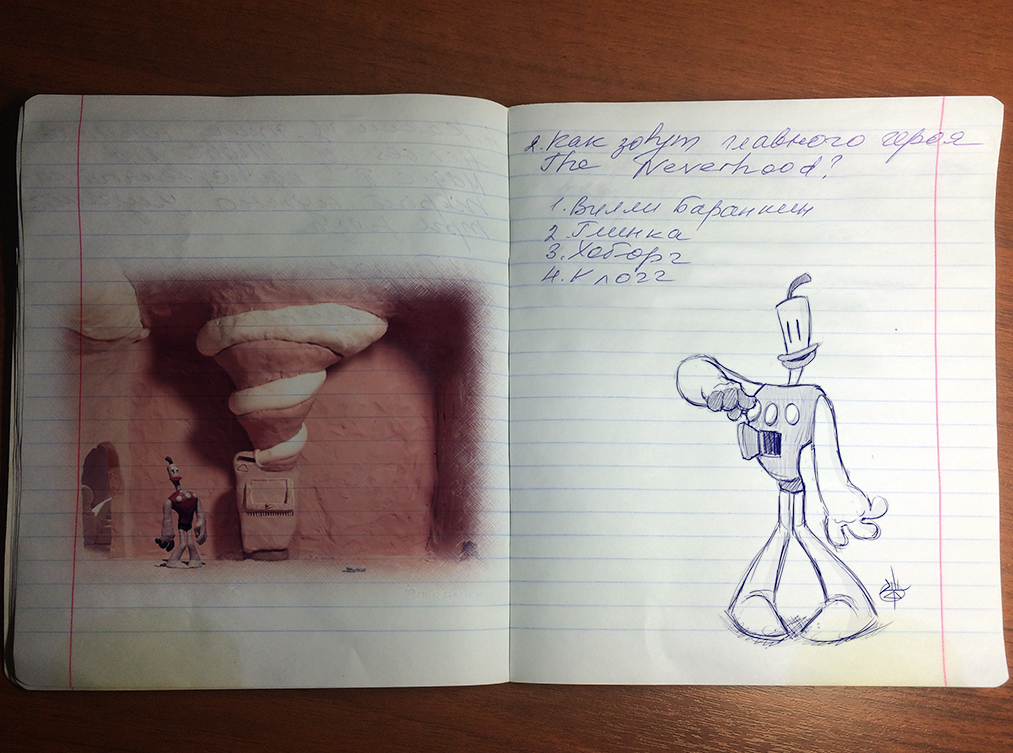 2. Как зовут главного героя
The Neverhood?
1. Вилли Баранкин
2. Глинка
3. Хоборг
4. Клогг